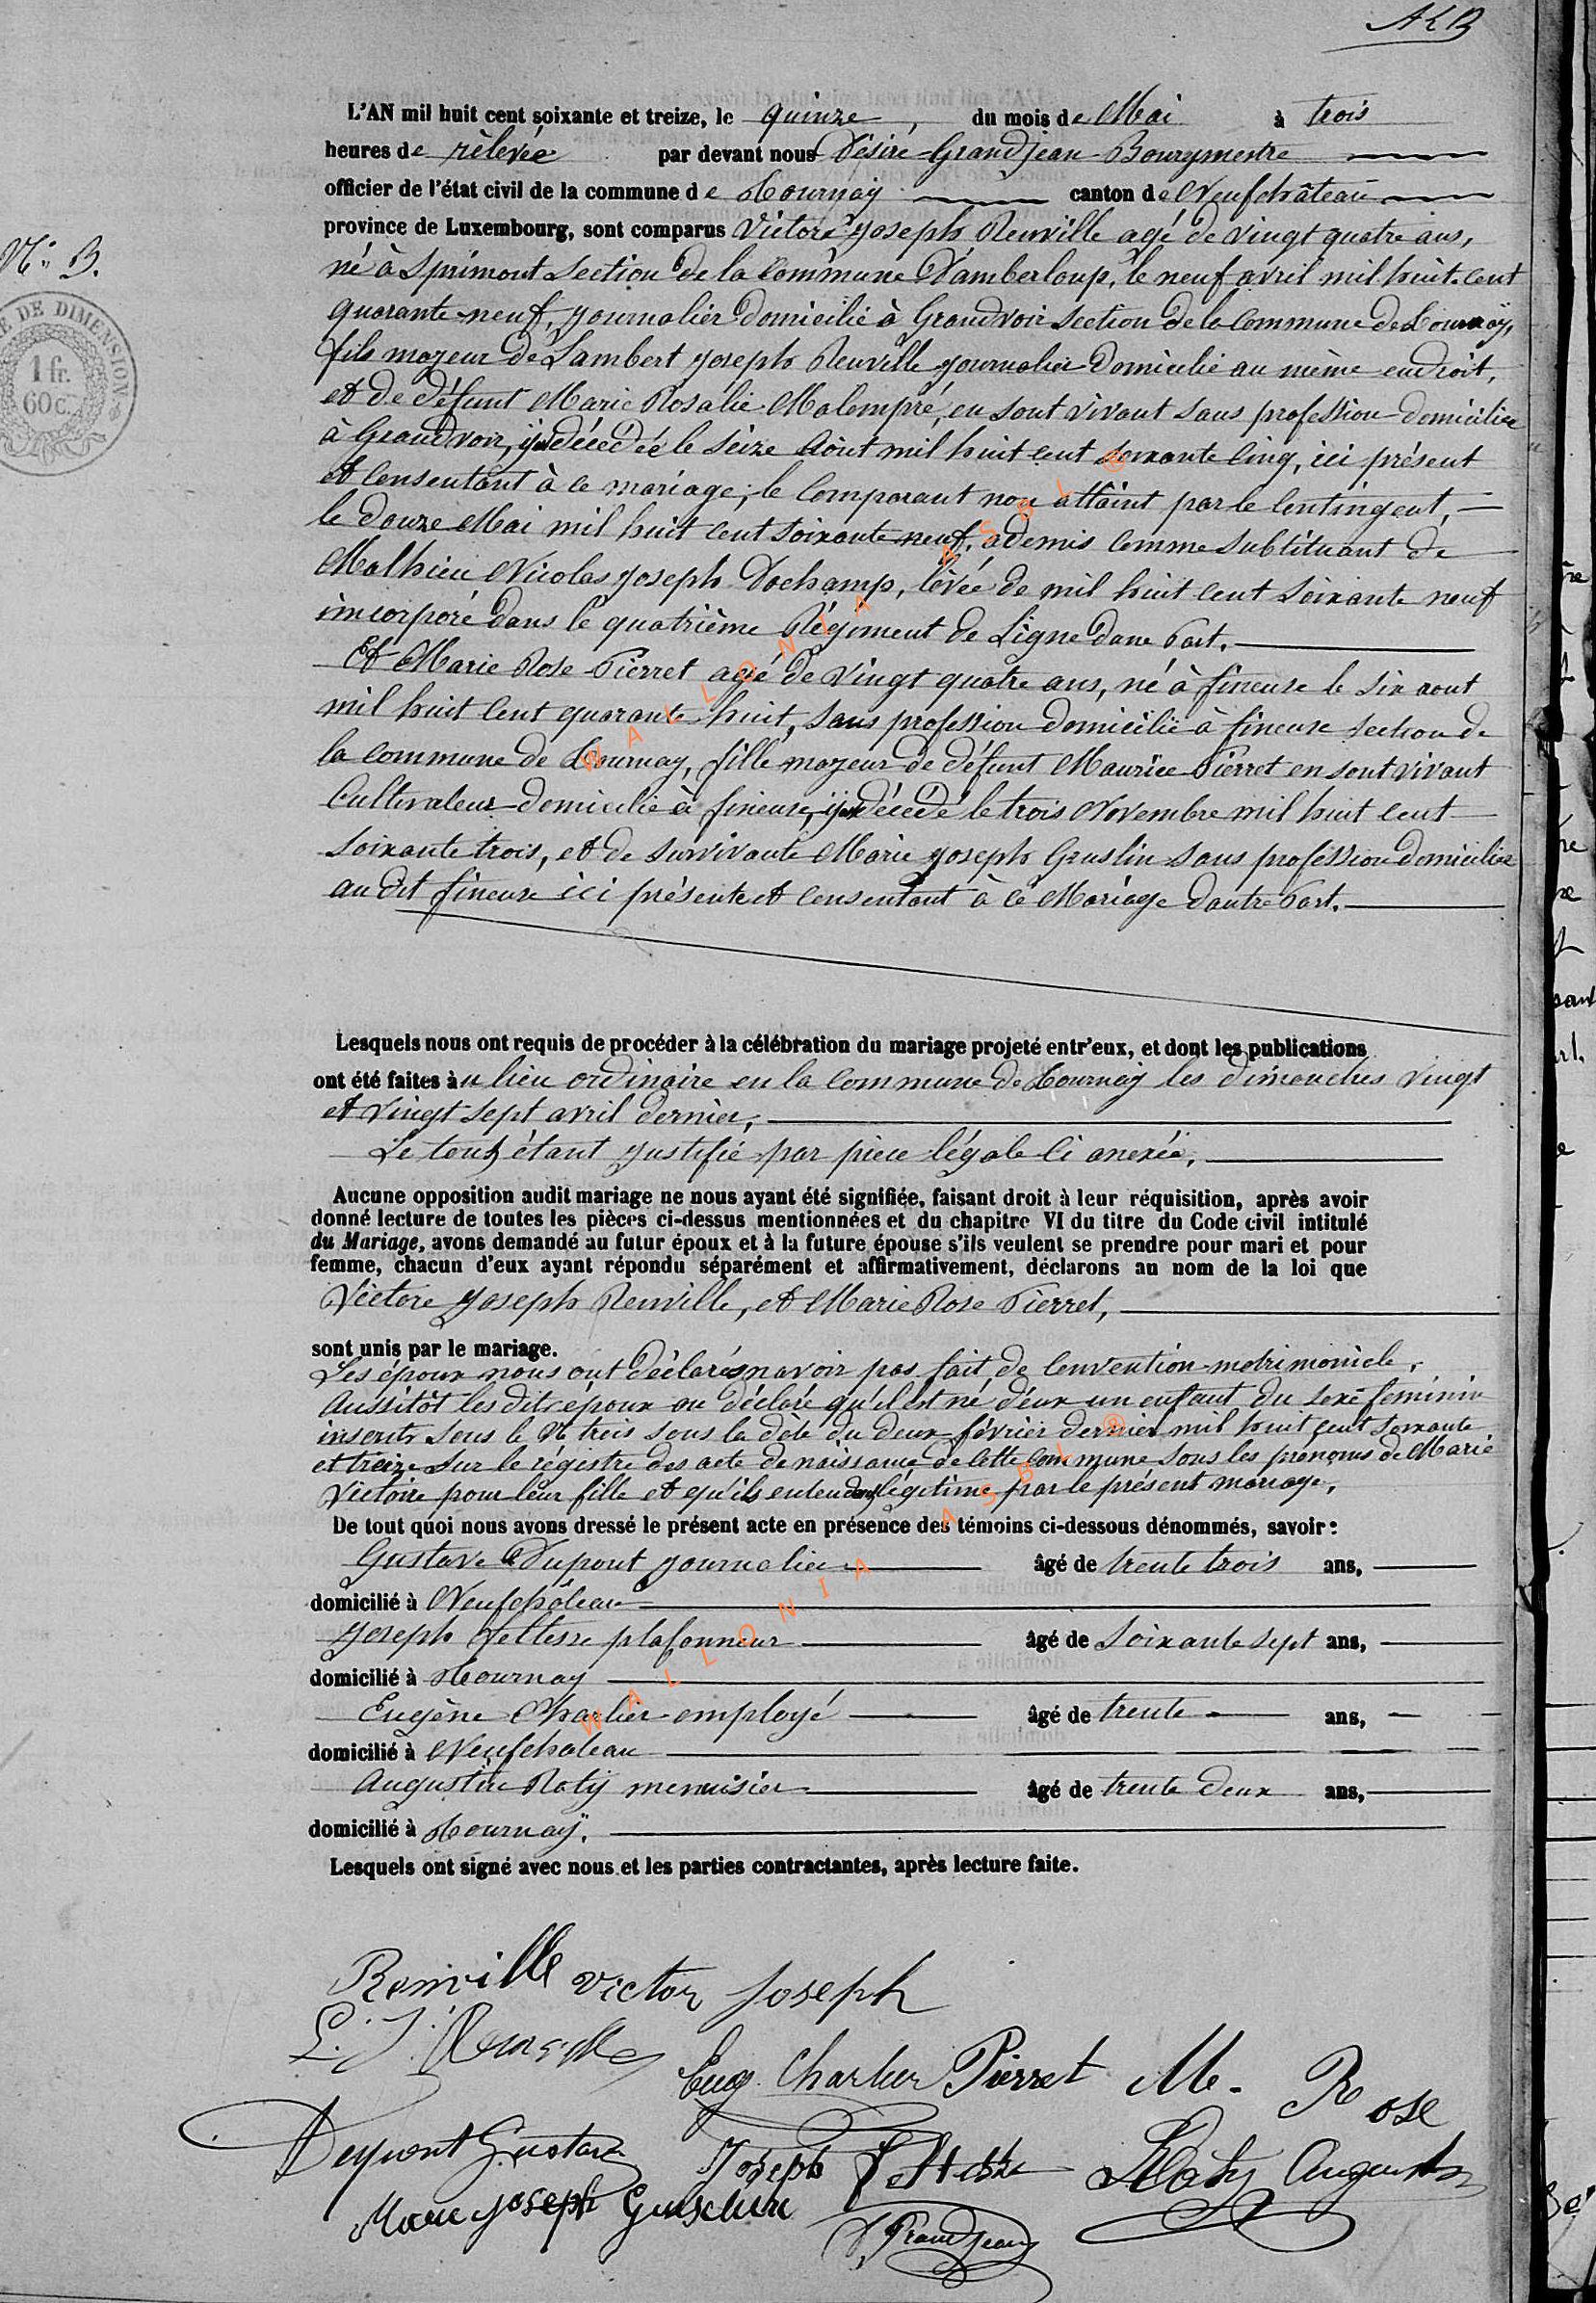 ALB
L'AN mil huit cent soixante et treize, le quinze, du mois de Mai à trois
heures de rélevée par devant nous Désiré Grandjean Bourgmestre
officier de l'état civil de la commune de Tournay canton de Neufchâteau
province de Luxembourg, sont comparus Victore Joseph Renville agé de vingt quatre ans,
N° 3.
né à Sprimont section de la Commune D'amberloup, le neuf avril mil huit cent
quarante neuf, journalier domicilié à Grandvoir section de la Commune de Tournay,
fils mazeur de Lambert Joseph Renville journalier domicilié au même endroit,
et de défunt Marie Rosalie Malempré, en sont vivant sans profession domiciliée
à Grandvoir, y décédée le seize Août mil huit cent soixante cinq, ici présent
et Consentant à ce mariage; le Comparant non attaint par le Contingent,
le douze Mai mil huit cent soixante neuf, ademis comme subtituant de
Mathieu Nicolas Joseph Dochamp, levée de mil huit cent soixante neuf
incorporé dans le quatrième Régiment de Ligne dune Part.
Et Marie Rose Pierret agé de vingt quatre ans, né à fineuse le six aout
mil huit cent quarante huit, sans profession domicilié à fineuse section de
la commune de Tournay, fille mazeur de défunt Maurice Pierret en sont vivant
Cultivateur domicilié à fineuse, y décédé le trois Novembre mil huit cent
soixante trois, et de survivante Marie Joseph Guslin sans profession domiciliée
au dit fineuse ici présente et consentant à ce Mariage dautre Part.
Lesquels nous ont requis de procéder à la célébration du mariage projeté entr'eux, et dont les publications
ont été faites au lieu ordinaire en la commune de Tournay les dimanches vingt
et vingt sept avril dernier,
Le tout étant justifié par pièce légale ci anexée,
Aucune opposition audit mariage ne nous ayant été signifiée, faisant droit à leur réquisition, après avoir
donné lecture de toutes les pièces ci-dessus mentionnées et du chapitre VI du titre du Code civil intitulé
du Mariage, avons demandé au futur époux et à la future épouse s'ils veulent se prendre pour mari et pour
femme, chacun d'eux ayant répondu séparément et affirmativement, déclarons au nom de la loi que
Victore Joseph Renville, et Marie Rose Pierret,
sont unis par le mariage.
Les époux nous ont déclarés navoir pas fait de Convention matrimoniele,
Aussitôt les dits époux on déclaré qu'il est né d'eux un enfant du sexe feminin
inscrit sous le N° trois sous la date du deux février dernier mil huit cent soixante
et treize sur le régistre des acte de naissance de cette Commune sous les prénoms de Marie
Victoire pour leur fille et qu'ils entendent légitime par le présent mariage,
De tout quoi nous avons dressé le présent acte en présence des témoins ci-dessous dénommés, savoir:
Gustave Dupont journalier âgé de trente trois ans,
domicilié à Neufchâteau
Joseph Feltesse plafonneur âgé de soixante sept ans,
domicilié à Tournay
Eugène Charlier employé âgé de trente ans,
domicilié à Neufchateau
Augustin Roty menuisier âgé de trente deux ans,
domicilié à Tournaÿ.
Lesquels ont signé avec nous et les parties contractantes, après lecture faite.
Renville victor joseph
L. J. Renville
Eug. Charlier Pierret M. Rose
Dupont Gustave Joseph Feltesse Roty Augustin
Marie joseph Guschlin
D. Grandjean
DE DIMENSION
1 fr.
60 c.
WALLONIA ASBL ®
WALLONIA ASBL ®